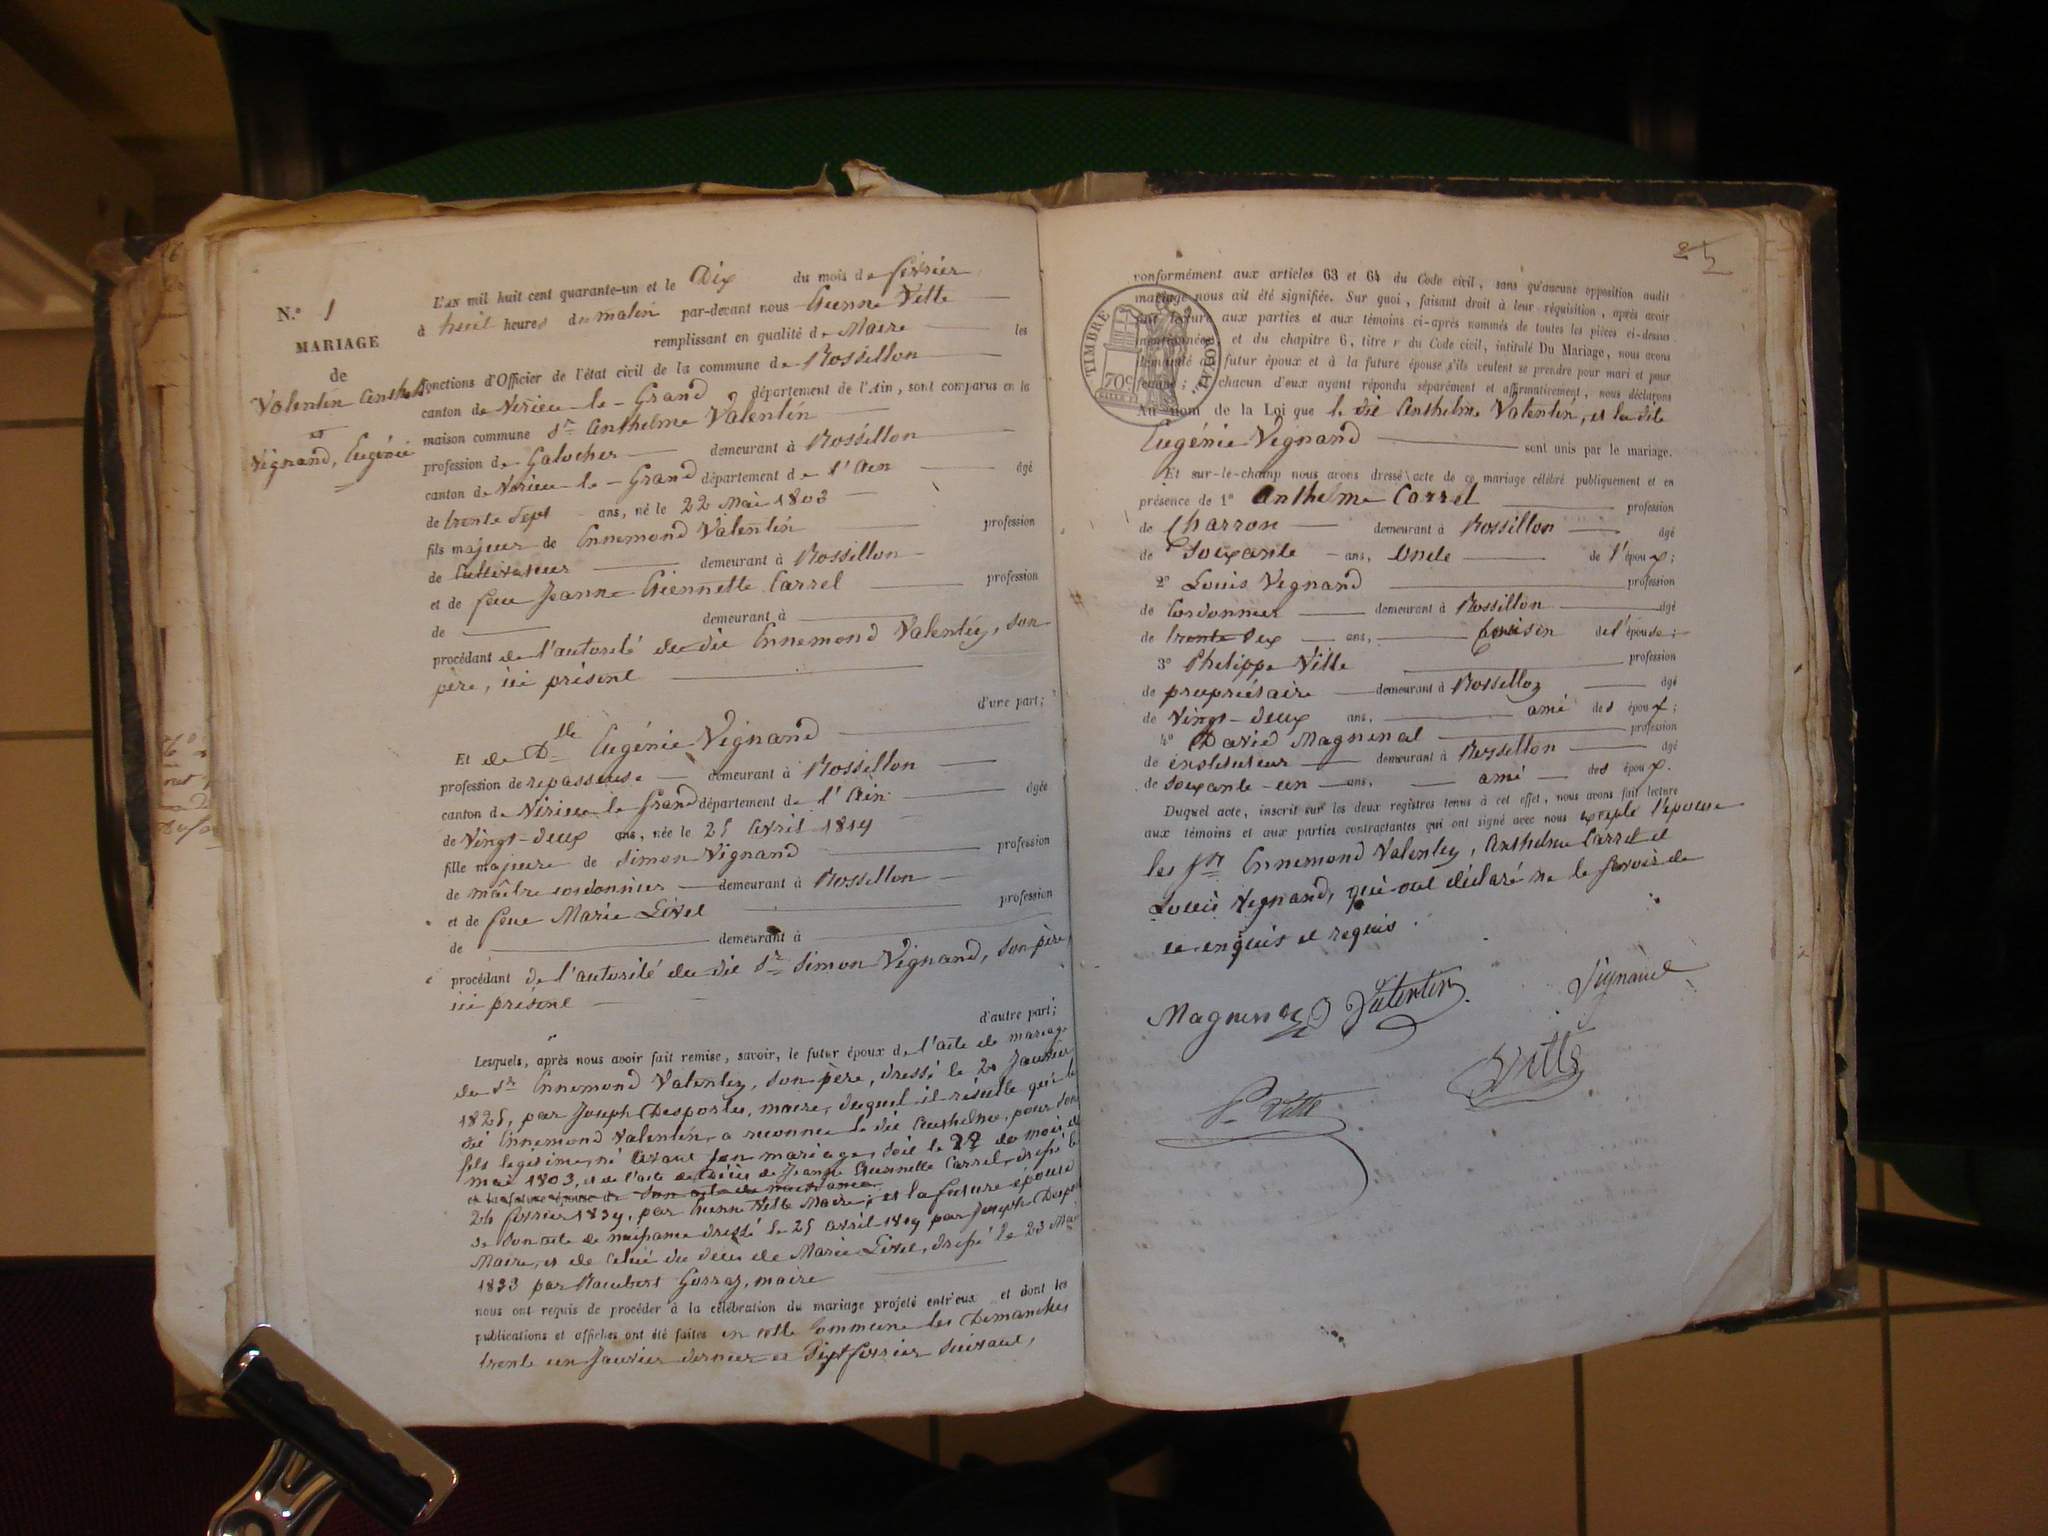 N.º 1
MARIAGE
de
Valentin Anthel
et
Vignand, Eugénie
L'AN mil huit cent quarante-un et le Dix du mois de février
à huit heures du matin par-devant nous Etienne Vette
remplissant en qualité de Maire les
fonctions d'Officier de l'état civil de la commune de Rossillon
canton de Virieu-le-Grand département de l'Ain, sont comparus en la
maison commune Sr Anthelme Valentin
profession de Galocher demeurant à Rossillon
canton de Virieu-le-Grand département de l'Ain âgé
de trente sept ans, né le 22 Mai 1803
fils majeur de Ennemond Valentin profession
de Cultivateur demeurant à Rossillon
et de feue Jeanne Etiennette Carrel profession
de demeurant à
procédant de l'autorité du dit Ennemond Valentin, son
père, ici présent
d'une part;
Et de Dlle Eugénie Vignand
profession de repasseuse demeurant à Rossillon
canton de Virieu-le-Grand département de l'Ain âgée
de Vingt-deux ans, née le 25 Avril 1819
fille majeure de Simon Vignand profession
de maître cordonnier demeurant à Rossillon
et de feue Marie Livet profession
de demeurant à
procédant de l'autorité du dit Sr Simon Vignand, son père,
ici présent
d'autre part;
Lesquels, après nous avoir fait remise, savoir, le futur époux de l'acte de mariage
du Sr Ennemond Valentin, son père, dressé le 20 Janvier
1825, par Joseph Desportes, maire, duquel il résulte que le
dit Ennemond Valentin, a reconnu le dit Anthelme, pour son
fils légitime, né avant son mariage, soit le 22 du mois de
mai 1803, et de l'acte de décès de Jeanne Etiennette Carrel, dressé le
et la future épouse de son acte de naissance
26 février 1839, par Etienne Vette Maire; et la future épouse
de son acte de naissance dressé le 25 avril 1819 par Joseph Desportes
Maire, et de celui du décès de Marie Livet, dressé le 23 Mai
1833 par Rambert Gorraz, maire
nous ont requis de procéder à la célébration du mariage projeté entr'eux et dont les
publications et affiches ont été faites en cette Commune les Dimanches
trente un Janvier dernier et Sept février suivant,
25
conformément aux articles 63 et 64 du Code civil, sans qu'aucune opposition audit
mariage nous ait été signifiée. Sur quoi, faisant droit à leur réquisition, après avoir
fait lecture aux parties et aux témoins ci-après nommés de toutes les pièces ci-dessus
mentionnées et du chapitre 6, titre v du Code civil, intitulé Du Mariage, nous avons
demandé au futur époux et à la future épouse s'ils veulent se prendre pour mari et pour
femme; chacun d'eux ayant répondu séparément et affirmativement, nous déclarons
TIMBRE ROYAL
70c
Au nom de la Loi que le dit Anthelme Valentin, et la dite
Eugénie Vignand sont unis par le mariage.
Et sur-le-champ nous avons dressé acte de ce mariage célébré publiquement et en
présence de 1º Anthelme Carrel profession
de Charron demeurant à Rossillon âgé
de Soixante ans, Oncle de l'époux;
2º Louis Vignand profession
de Cordonnier demeurant à Rossillon âgé
de trente deux ans, Cousin de l'épouse;
3º Philippe Vette profession
de propriétaire demeurant à Rossillon âgé
de Vingt-deux ans, ami des époux;
4º David Magnenat profession
de instituteur demeurant à Rossillon âgé
de soixante-un ans, ami des époux.
Duquel acte, inscrit sur les deux registres tenus à cet effet, nous avons fait lecture
aux témoins et aux parties contractantes qui ont signé avec nous excepté l'épouse
les Srs Ennemond Valentin, Anthelme Carrel et
Louis Vignand, qui ont déclaré ne le savoir de
ce enquis et requis.
Magnenat Valentin Vignand
P. Vette Vette